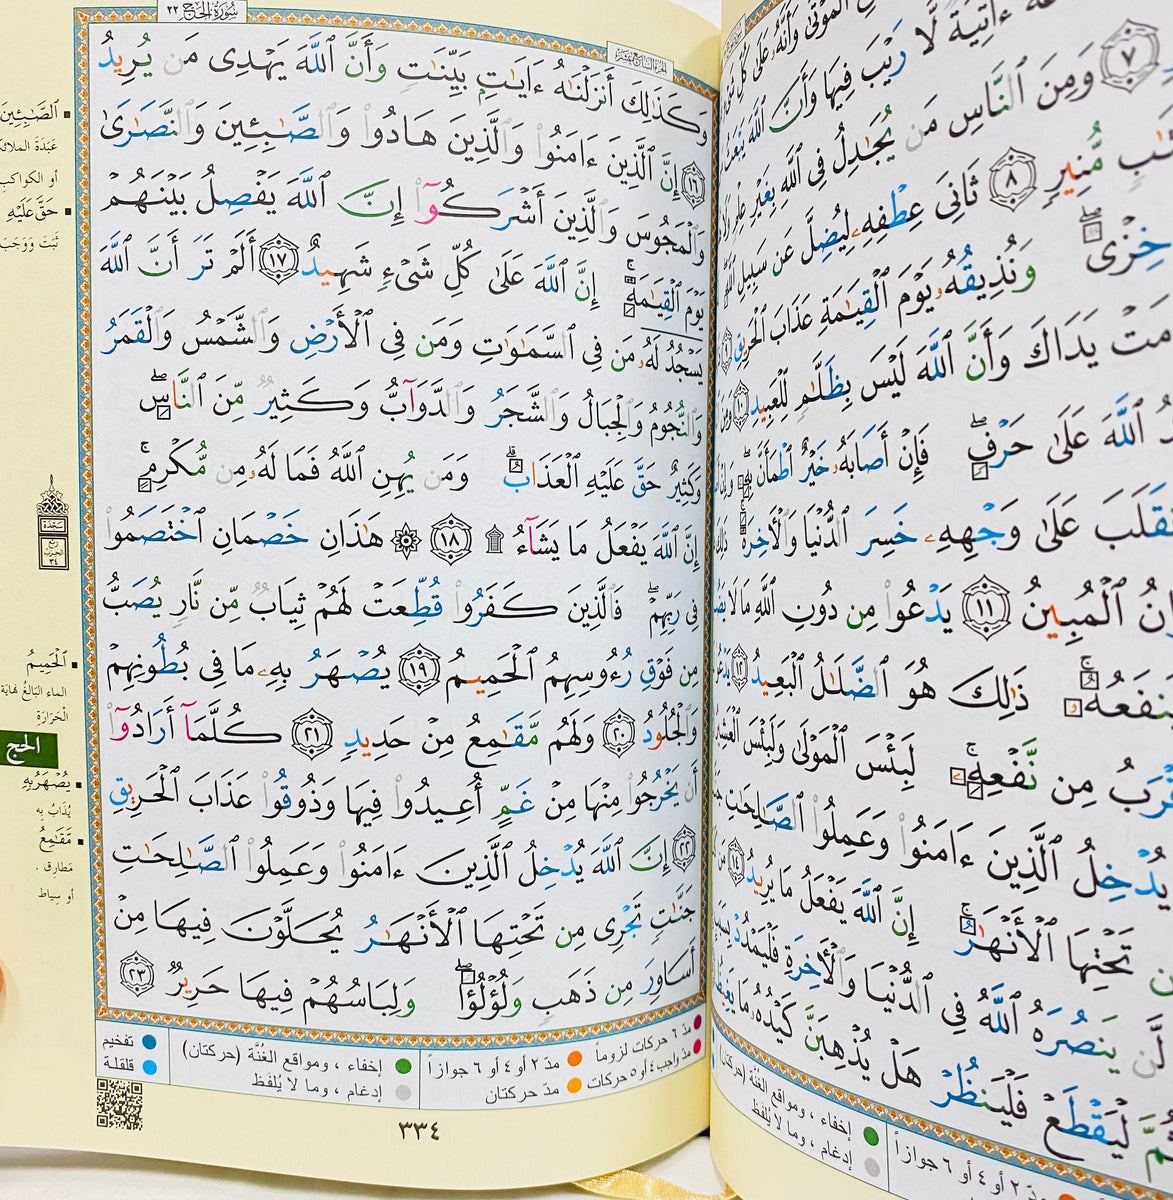 ٱلْمَوْتَىٰ وَأَنَّهُۥ عَلَىٰ كُلِّ
ءَاتِيَةٌ لَّا رَيْبَ فِيهَا وَأَنَّ ٱللَّهَ يَبْعَثُ
٧ وَمِنَ ٱلنَّاسِ مَن يُجَٰدِلُ فِى ٱللَّهِ بِغَيْرِ عِلْمٍ وَلَا
مُّنِيرٍ ٨ ثَانِىَ عِطْفِهِۦ لِيُضِلَّ عَن سَبِيلِ ٱللَّهِ
خِزْىٌ وَنُذِيقُهُۥ يَوْمَ ٱلْقِيَٰمَةِ عَذَابَ ٱلْحَرِيقِ ٩
يَدَاكَ وَأَنَّ ٱللَّهَ لَيْسَ بِظَلَّٰمٍ لِّلْعَبِيدِ ١٠ وَمِنَ
ٱللَّهَ عَلَىٰ حَرْفٍ فَإِنْ أَصَابَهُۥ خَيْرٌ ٱطْمَأَنَّ بِهِۦ وَإِنْ
عَلَىٰ وَجْهِهِۦ خَسِرَ ٱلدُّنْيَا وَٱلْأَخِرَةَ
ٱلْمُبِينُ ١١ يَدْعُوا۟ مِن دُونِ ٱللَّهِ مَا لَا
ذَٰلِكَ هُوَ ٱلضَّلَٰلُ ٱلْبَعِيدُ ١٢ يَدْعُوا۟
مِن نَّفْعِهِۦ لَبِئْسَ ٱلْمَوْلَىٰ وَلَبِئْسَ ٱلْعَشِيرُ
يُدْخِلُ ٱلَّذِينَ ءَامَنُوا۟ وَعَمِلُوا۟ ٱلصَّٰلِحَٰتِ
تَحْتِهَا ٱلْأَنْهَٰرُ إِنَّ ٱللَّهَ يَفْعَلُ مَا يُرِيدُ ١٤
لَّن يَنصُرَهُ ٱللَّهُ فِى ٱلدُّنْيَا وَٱلْأَخِرَةِ فَلْيَمْدُدْ
لْيَقْطَعْ فَلْيَنظُرْ هَلْ يُذْهِبَنَّ كَيْدُهُۥ مَا يَغِيظُ
مدّ ٢ أو ٤ أو ٦ جوازاً
إخفاء ، ومواقع الغنّة (حركتان)
إدغام ، وما لا يُلفظ
الجزء السابع عشر
سُورَةُ الحَجّ ٢٢
وَكَذَٰلِكَ أَنزَلْنَٰهُ ءَايَٰتٍۭ بَيِّنَٰتٍ وَأَنَّ ٱللَّهَ يَهْدِى مَن يُرِيدُ
١٦ إِنَّ ٱلَّذِينَ ءَامَنُوا۟ وَٱلَّذِينَ هَادُوا۟ وَٱلصَّٰبِـِٔينَ وَٱلنَّصَٰرَىٰ
وَٱلْمَجُوسَ وَٱلَّذِينَ أَشْرَكُوٓا۟ إِنَّ ٱللَّهَ يَفْصِلُ بَيْنَهُمْ
يَوْمَ ٱلْقِيَٰمَةِ إِنَّ ٱللَّهَ عَلَىٰ كُلِّ شَىْءٍ شَهِيدٌ ١٧ أَلَمْ تَرَ أَنَّ ٱللَّهَ
يَسْجُدُ لَهُۥ مَن فِى ٱلسَّمَٰوَٰتِ وَمَن فِى ٱلْأَرْضِ وَٱلشَّمْسُ وَٱلْقَمَرُ
وَٱلنُّجُومُ وَٱلْجِبَالُ وَٱلشَّجَرُ وَٱلدَّوَآبُّ وَكَثِيرٌ مِّنَ ٱلنَّاسِ
وَكَثِيرٌ حَقَّ عَلَيْهِ ٱلْعَذَابُ وَمَن يُهِنِ ٱللَّهُ فَمَا لَهُۥ مِن مُّكْرِمٍ
إِنَّ ٱللَّهَ يَفْعَلُ مَا يَشَآءُ ۩ ١٨ ۞ هَٰذَانِ خَصْمَانِ ٱخْتَصَمُوا۟
فِى رَبِّهِمْ فَٱلَّذِينَ كَفَرُوا۟ قُطِّعَتْ لَهُمْ ثِيَابٌ مِّن نَّارٍ يُصَبُّ
مِن فَوْقِ رُءُوسِهِمُ ٱلْحَمِيمُ ١٩ يُصْهَرُ بِهِۦ مَا فِى بُطُونِهِمْ
وَٱلْجُلُودُ ٢٠ وَلَهُم مَّقَٰمِعُ مِنْ حَدِيدٍ ٢١ كُلَّمَآ أَرَادُوٓا۟
أَن يَخْرُجُوا۟ مِنْهَا مِنْ غَمٍّ أُعِيدُوا۟ فِيهَا وَذُوقُوا۟ عَذَابَ ٱلْحَرِيقِ
٢٢ إِنَّ ٱللَّهَ يُدْخِلُ ٱلَّذِينَ ءَامَنُوا۟ وَعَمِلُوا۟ ٱلصَّٰلِحَٰتِ
جَنَّٰتٍ تَجْرِى مِن تَحْتِهَا ٱلْأَنْهَٰرُ يُحَلَّوْنَ فِيهَا مِنْ
أَسَاوِرَ مِن ذَهَبٍ وَلُؤْلُؤًا وَلِبَاسُهُمْ فِيهَا حَرِيرٌ ٢٣
مدّ ٦ حركات لزوماً
مدّ واجب ٤ أو ٥ حركات
مدّ ٢ أو ٤ أو ٦ جوازاً
مدّ حركتان
إخفاء ، ومواقع الغنّة (حركتان)
إدغام ، وما لا يُلفَظ
تفخيم
قلقلة
٣٣٤
ٱلصَّٰبِـِٔينَ
عَبَدَةَ
أو الكواكب
حَقَّ عَلَيْهِ
ثَبَتَ وَوَجَبَ
سَجْدَة
ربع
الحزب
٣٤
ٱلْحَمِيمُ
الماء البَالِغُ نهايَة
الحَرَارَةِ
الحج
يُصْهَرُ بِهِ
يُذَابُ به
مَّقَٰمِعُ
مَطَارِق .
أو سِياط